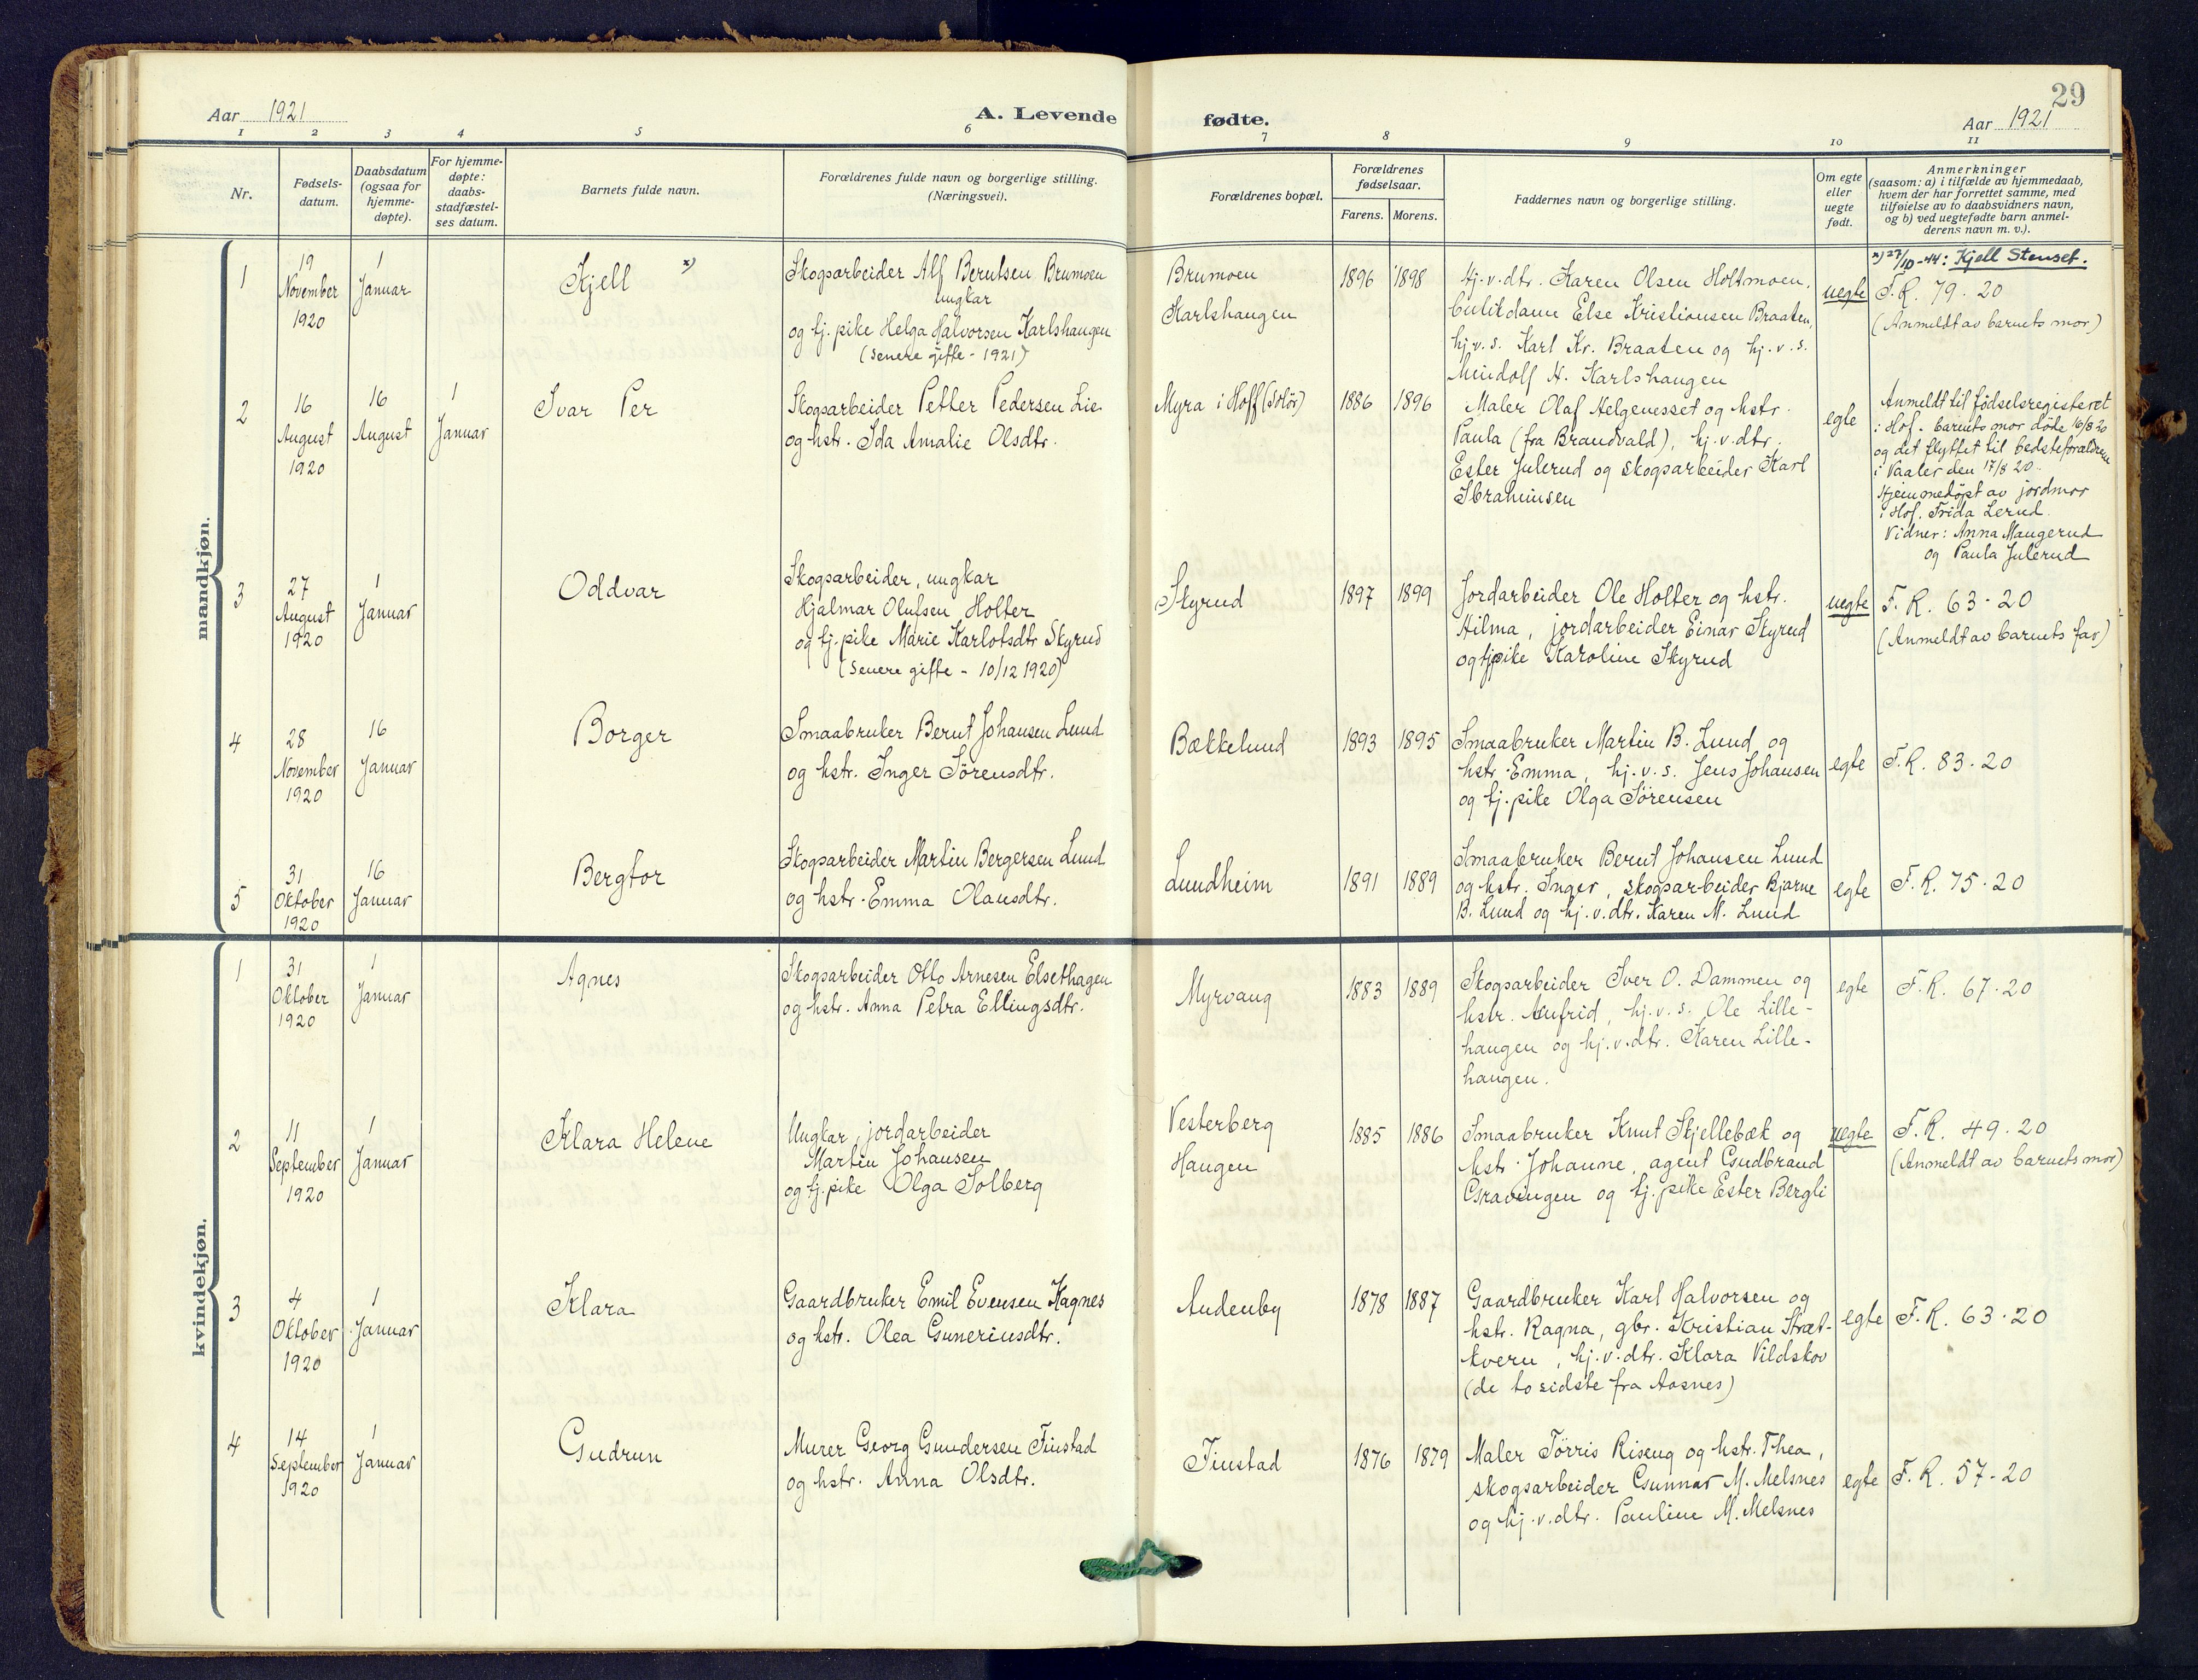 29
Aar 1921
A. Levende
fødte.
Aar 1921
1 2 3 4 5 6 7 8 9 10 11
Nr.
Fødsels-
datum.
Daabsdatum
(ogsaa for
hjemme-
døpte).
For hjemme-
døpte:
daabs-
stadfæstel-
ses datum.
Barnets fulde navn.
Forældrenes fulde navn og borgerlige stilling.
(Næringsvei).
Forældrenes bopæl.
Forældrenes
fødselsaar.
Farens. Morens.
Faddernes navn og borgerlige stilling.
Om egte
eller
uegte
født.
Anmerkninger
(saasom: a) i tilfælde av hjemmedaab,
hvem der har forrettet samme, med
tilføielse av to daabsvidners navn,
og b) ved uegtefødte barn anmel-
derens navn m. v.).
mandkjøn.
1
19
November
1920
1
Januar
Kjell x)
Skogsarbeider Alf Berntsen Brumoen
ungkar
og tj. pike Helga Halvorsen Karlshaugen
(senere gifte - 1921)
Brumoen
Karlshaugen
1896 1898
Hj.v.dtr. Karen Olsen Holtmoen,
Else Kristiansen Braaten,
hj.v.s. Karl Kr. Braaten og hj.v.s.
Mindolf H. Karlshaugen
uegte
x) 27/10-44: Kjell Stenset.
F.R. 79-20
(Anmeldt av barnets mor)
2
16
August
1920
16
August
1
Januar
Ivar Per
Skogsarbeider Petter Pedersen Lie
og hstr. Ida Amalie Olsdtr.
Myra i Hoff (Solör)
1886 1896
Maler Olaf Helgenesset og hstr.
Paula (fra Brandvald), hj.v.dtr.
Ester Julerud og skogsarbeider Karl
Ibrahimsen
egte
Anmeldt til fødselsregisteret
i Hof. Barnets mor døde 16/8 20
og det flyttet til bedsteforældrene
i Vaaler den 17/8 20.
Hjemmedøpt av jordmor
i Hof, Frida Lerud.
Vidner: Anna Maugerud
og Paula Julerud
3
27
August
1920
1
Januar
Oddvar
Skogsarbeider, ungkar
Hjalmar Olufsen Holter
og tj. pike Marie Karlotsdtr Skyrud
(senere gifte - 10/12 1920)
Skyrud
1897 1899
Jordarbeider Ole Holter og hstr.
Hilma, jordarbeider Einar Skyrud
og tjpike Karoline Skyrud
uegte
F.R. 63-20
(Anmeldt av barnets far)
4
28
November
1920
16
Januar
Borger
Smaabruker Bernt Johansen Lund
og hstr. Inger Sörensdtr.
Bækkelund
1893 1895
Smaabruker Martin B. Lund og
hstr. Emma, hj.v.s. Jens Johansen
og tj. pike Olga Sörensen
egte
F.R. 83-20
5
31
Oktober
1920
16
Januar
Bergtor
Skogsarbeider Martin Bergersen Lund
og hstr. Emma Olausdtr.
Lundheim
1891 1889
Smaabruker Bernt Johansen Lund
og hstr. Inger, skogsarbeider Bjarne
B. Lund og hj.v.dtr. Karen M. Lund
egte
F.R. 75-20
kvindekjøn.
1
31
Oktober
1920
1
Januar
Agnes
Skogsarbeider Otto Arnesen Elsethagen
og hstr. Anna Petra Ellingsdtr.
Myrvang
1883 1889
Skogsarbeider Iver O. Dammen og
hstr. Anfrid, hj.v.s. Ole Lille-
haugen og hj.v.dtr. Karen Lille-
haugen.
egte
F.R. 67-20
2
11
September
1920
1
Januar
Klara Helene
Ungkar, jordarbeider
Martin Johansen
og tj. pike Olga Solberg
Vesterberg
Haugen
1885 1886
Smaabruker Knut Skjellebæk og
hstr. Johanne, agent Gudbrand
Gravingen og tj. pike Ester Bergli
uegte
F.R. 49-20
(Anmeldt av barnets mor)
3
4
Oktober
1920
1
Januar
Klara
Gaardbruker Emil Evensen Kagnes
og hstr. Olea Guneriusdtr.
Audenby
1878 1887
Gaardbruker Karl Halvorsen og
hstr. Ragna, gbr. Kristian Stræt-
kvern, hj.v.dtr. Klara Vildskov
(de to sidste fra Aasnes)
egte
F.R. 63-20
4
14
September
1920
1
Januar
Gudrun
Murer Georg Gundersen Finstad
og hstr. Anna Olsdtr.
Finstad
1876 1879
Maler Törris Riseng og hstr. Thea,
skogsarbeider Gunnar M. Melsnes
og hj.v.dtr. Pauline M. Melsnes
egte
F.R. 57-20